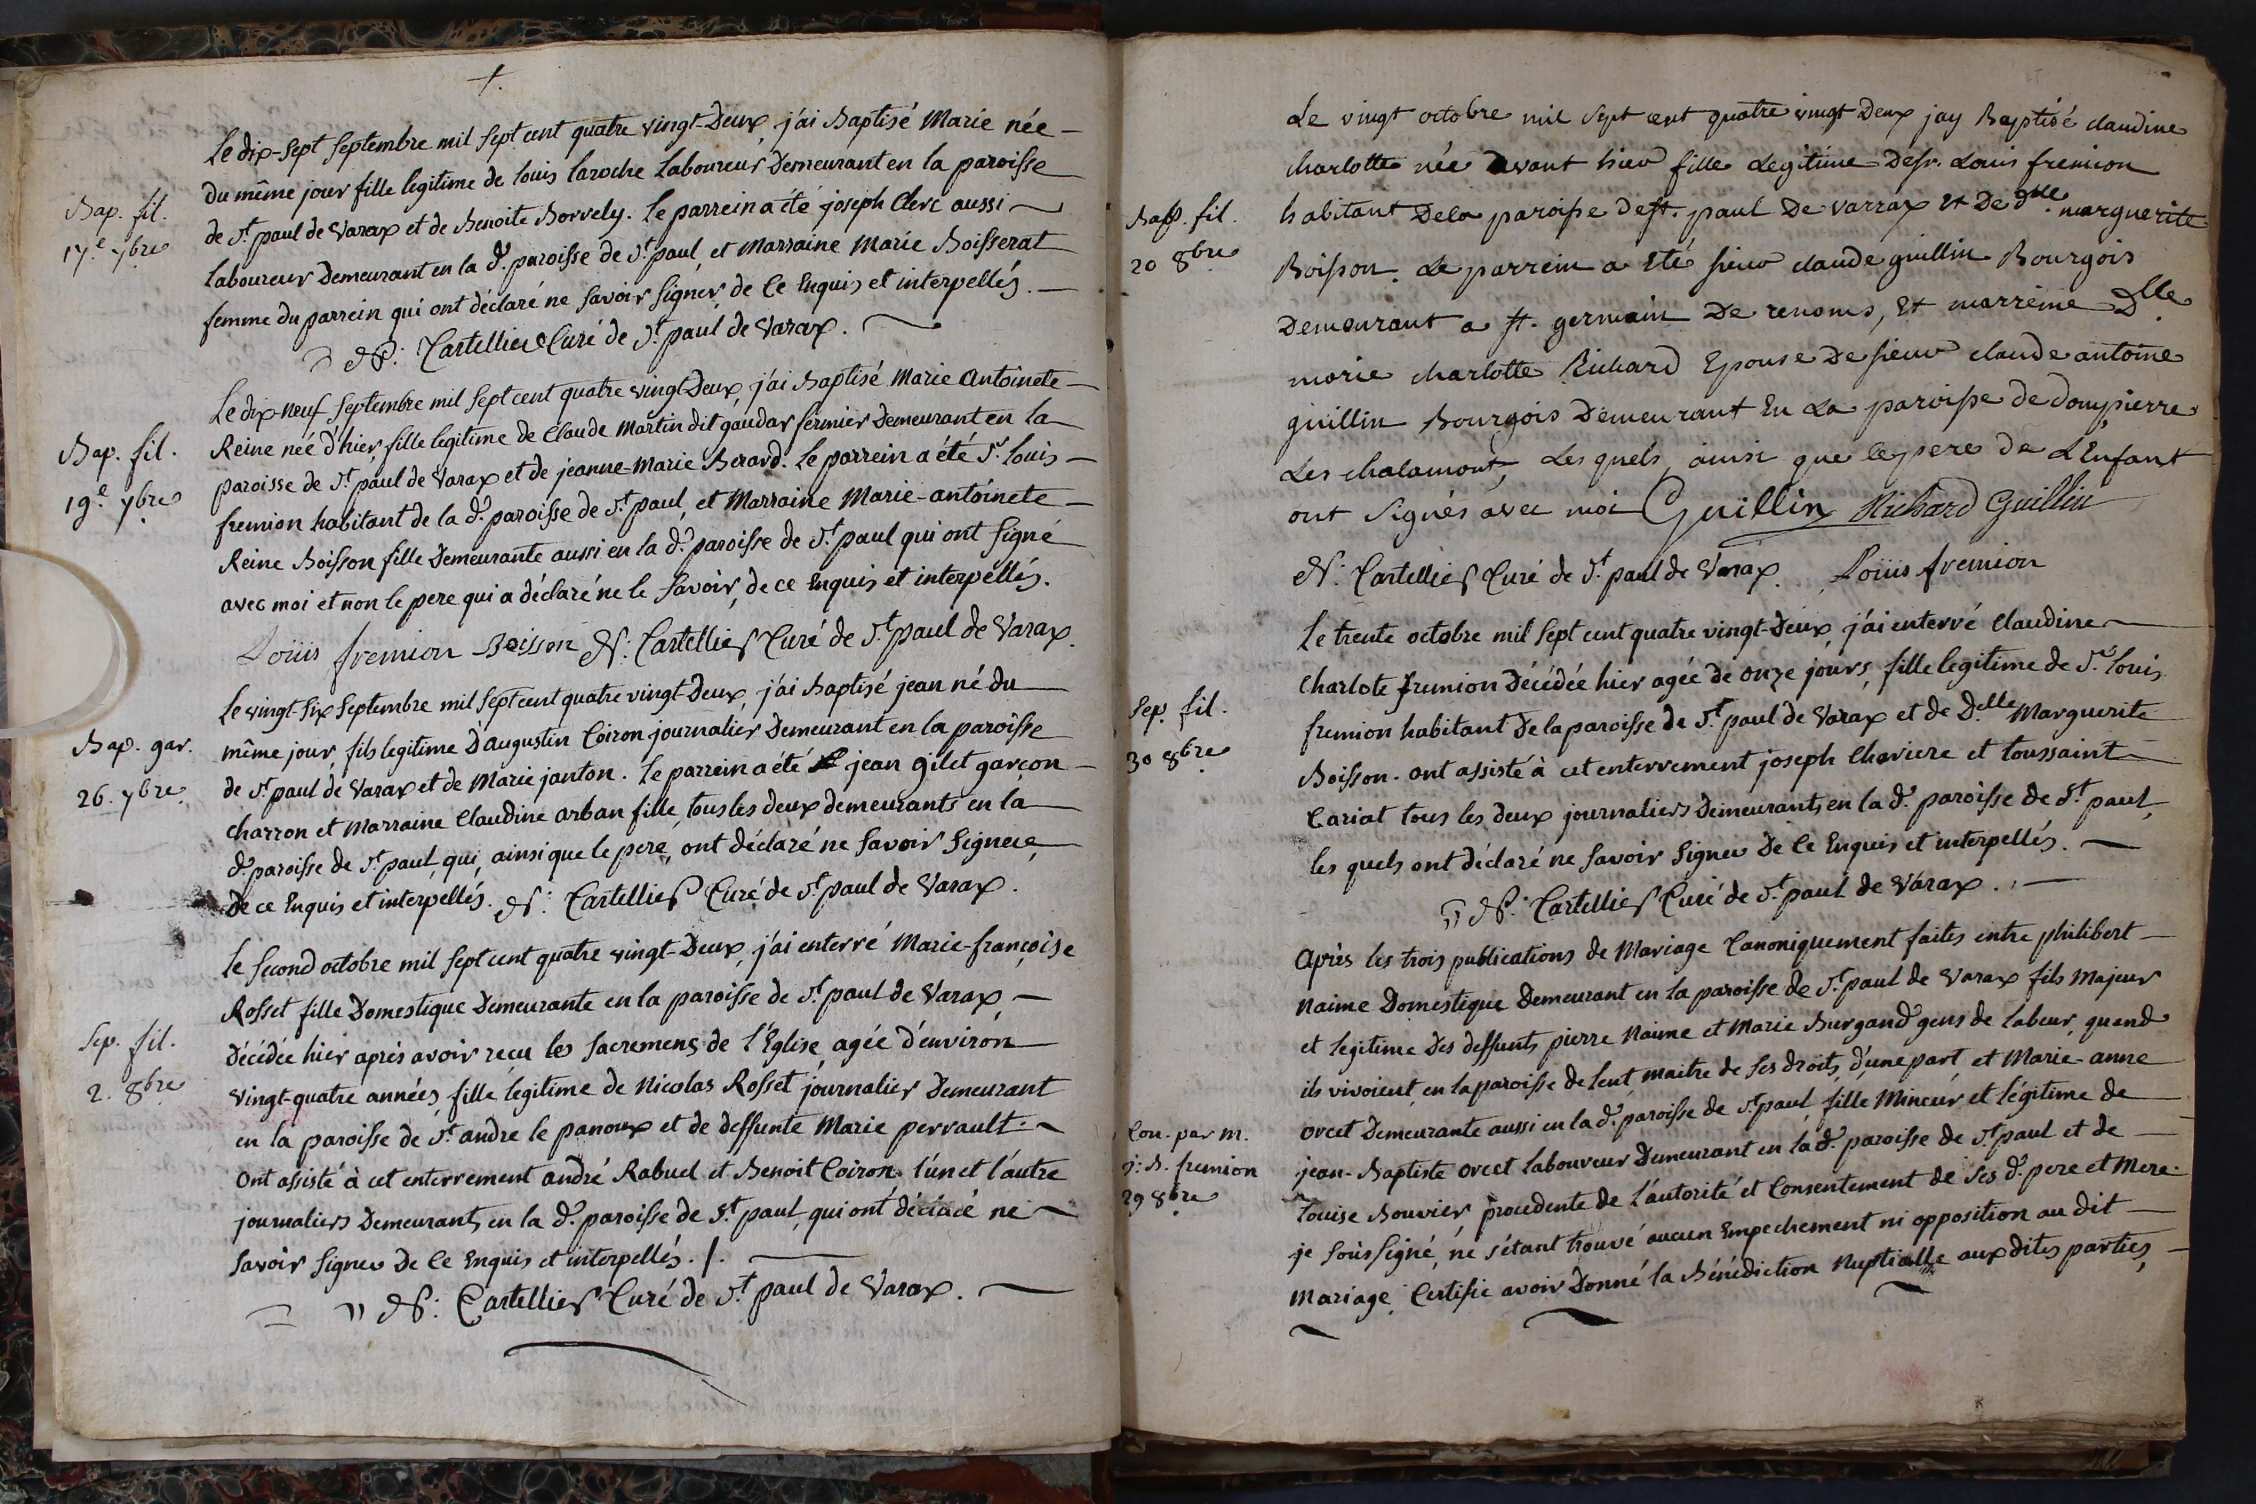 +.
Le dix-sept septembre mil sept cent quatre vingt-deux j'ai Baptisé Marie née
du même jour fille legitime de louis laroche Laboureur Demeurant en la paroisse
de St paul de Varax et de Benoite Borvely. le parrein a été joseph Clerc aussi
Laboureur Demeurant en la de. paroisse de St paul, et Marraine Marie Boisserat
femme du parrein qui ont déclaré ne savoir signer de ce Enquis et interpellés.
N: Cartellier Curé de St paul de Varax.
Bap. fil.
17e. 7bre
Le dix-neuf septembre mil sept cent quatre vingt-deux, j'ai Baptisé Marie Antoinete
Reine née d'hier, fille legitime de Claude Martin dit gaudar fermier Demeurant en la
paroisse de St paul de Varax et de jeanne-Marie Berard. le parrein a été Sr. louis
fremion habitant de la de. paroisse de St paul, et Marraine Marie-antoinete
Reine Boisson fille Demeurante aussi en la de. paroisse de St paul qui ont signé
avec moi et non le pere qui a déclaré ne le savoir, de ce Enquis et interpellés.
Loüis fremion Boisson N: Cartellier Curé de St paul de Varax.
Bap. fil.
19e. 7bre
Le vingt-six septembre mil sept cent quatre vingt-deux, j'ai Baptisé jean né du
même jour, fils legitime d'augustin Coiron journalier Demeurant en la paroisse
de St paul de Varax et de Marie janton. le parrein a été jean gilet garçon
charron et Marraine Claudine arban fille, tous les deux demeurants en la
de. paroisse de St paul, qui, ainsi que le pere, ont déclaré ne savoir signer,
de ce Enquis et interpellés. N: Cartellier Curé de St paul de Varax.
Bap. gar.
26. 7bre
Le second octobre mil sept cent quatre vingt-deux, j'ai enterré Marie-françoise
Rosset fille Domestique Demeurante en la paroisse de St paul de Varax,
Décédée hier après avoir recu les sacremens de l'Eglise, agée d'environ
vingt-quatre années, fille legitime de Nicolas Rosset journalier Demeurant
en la paroisse de St andré le panoux et de deffunte Marie perrault.
Ont assisté à cet enterrement andré Rabuel et Benoit Coiron l'un et l'autre
journaliers Demeurants en la de. paroisse de St paul, qui ont déclaré ne
savoir signer De ce Enquis et interpellés. /.
N: Cartellier Curé de St paul de Varax.
Sep. fil.
2. 8bre
Le vingt octobre mil sept cent quatre vingt Deux jay Baptisé claudine
charlotte née avant hier fille Legitime de sr. Louis fremion
habitant Dela paroisse de st. paul De varrax Et De dlle. marguerite
Boisson. Le parrein a Eté sieur claude guillin Bourgois
Demeurant a st. germain De renoms, Et marreine Dlle
marie charlotte Richard Epouse De sieur claude antoine
guillin Bourgois Demeurant En La paroisse de dompierre
Les chalamont, Les quels, ainsi que le pere de L'Enfant
ont signés avec moi Guillin Richard Guillin
N: Cartellier Curé de St paul de Varax. Loüis fremion
Bap. fil.
20 8bre
Le trente octobre mil sept cent quatre vingt-deux, j'ai enterré Claudine
Charlote fremion Décédée hier agée de onze jours, fille legitime de Sr. louis
fremion habitant De la paroisse de St paul de Varax et de Delle Marguerite
Boisson. ont assisté à cet enterrement joseph Chaviere et toussaint
Cariat tous les deux journaliers Demeurants en la de. paroisse de St paul,
les quels ont déclaré ne savoir signer De ce Enquis et interpellés.
N: Cartellier Curé de St paul de Varax.
Sep. fil.
30 8bre
Après les trois publications de Mariage Canoniquement faites entre philibert
Naime Domestique Demeurant en la paroisse de St paul de Varax fils Majeur
et legitime Des deffunts pierre Naime et Marie Burgand gens de labeur, quand
ils vivoient, en la paroisse de lent, maitre de ses droits, d'une part et Marie-anne
orcet Demeurante aussi en la de. paroisse de St paul, fille Mineur et légitime de
jean-Baptiste orcet laboureur Demeurant en la de. paroisse de St paul et de
louise Bouvier, procedente de l'autorité et Consentement de ses d. pere et mere.
je soussigné, ne s'étant trouvé aucun Empechement ni opposition au dit
Mariage, Certifie avoir Donné la Bénédiction Nuptialle aux dites parties,
Con. par M.
j: B. fremion
29 8bre